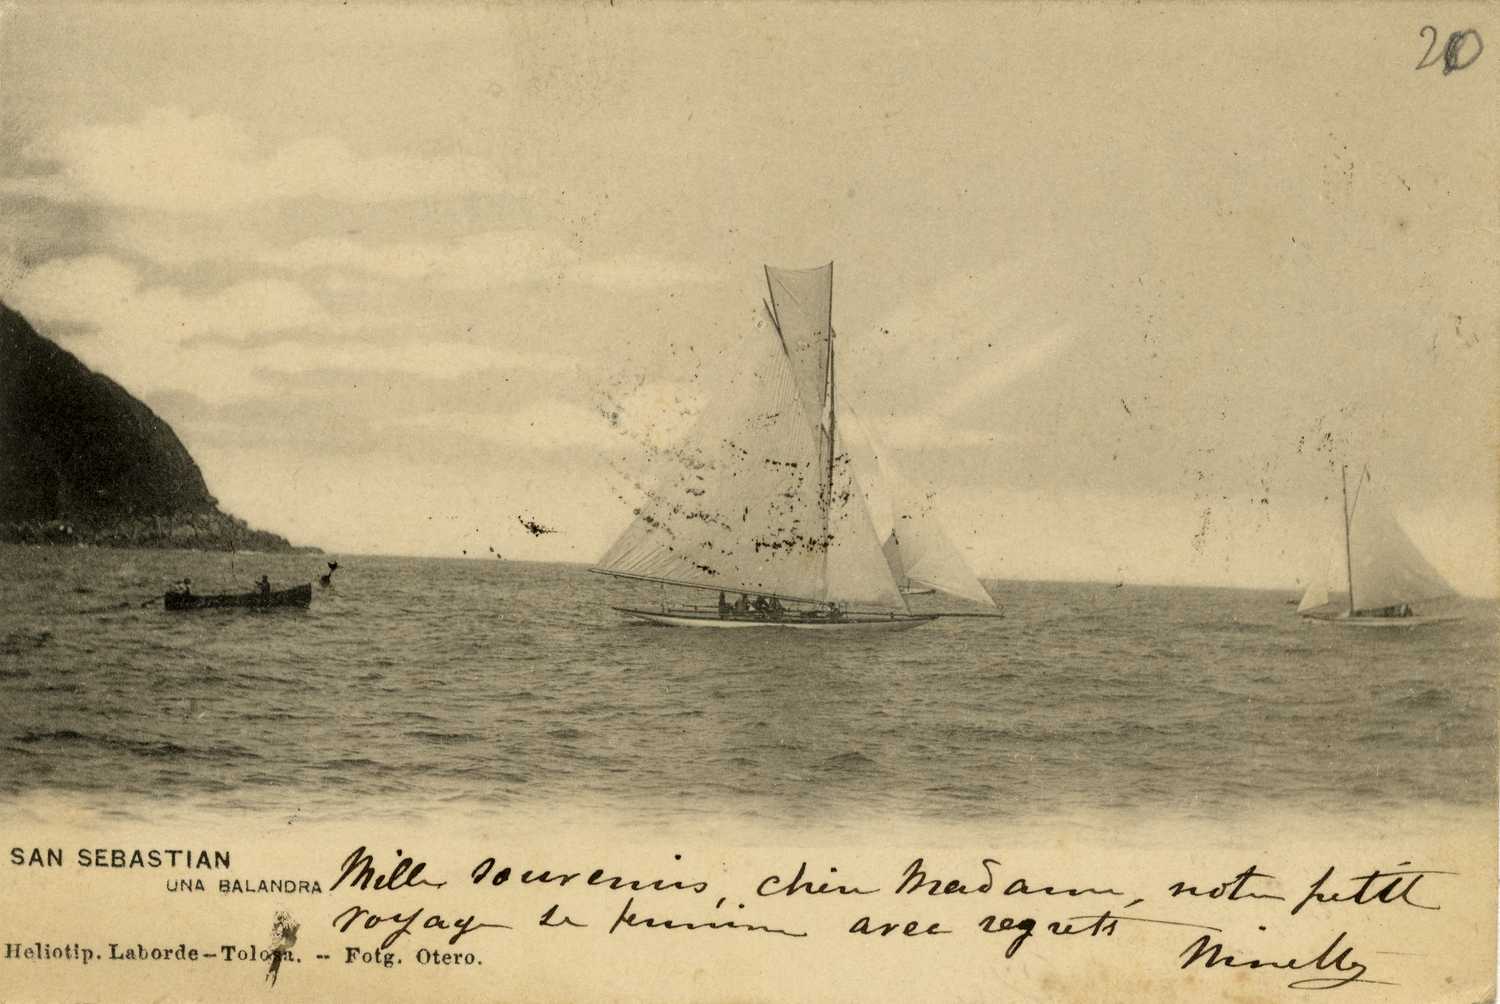 20
SAN SEBASTIAN
UNA BALANDRA
Mille souvenirs, chère Madame, notre petit
voyage se termine avec regrets
Heliotip. Laborde-Tolosa. -- Fotg. Otero.